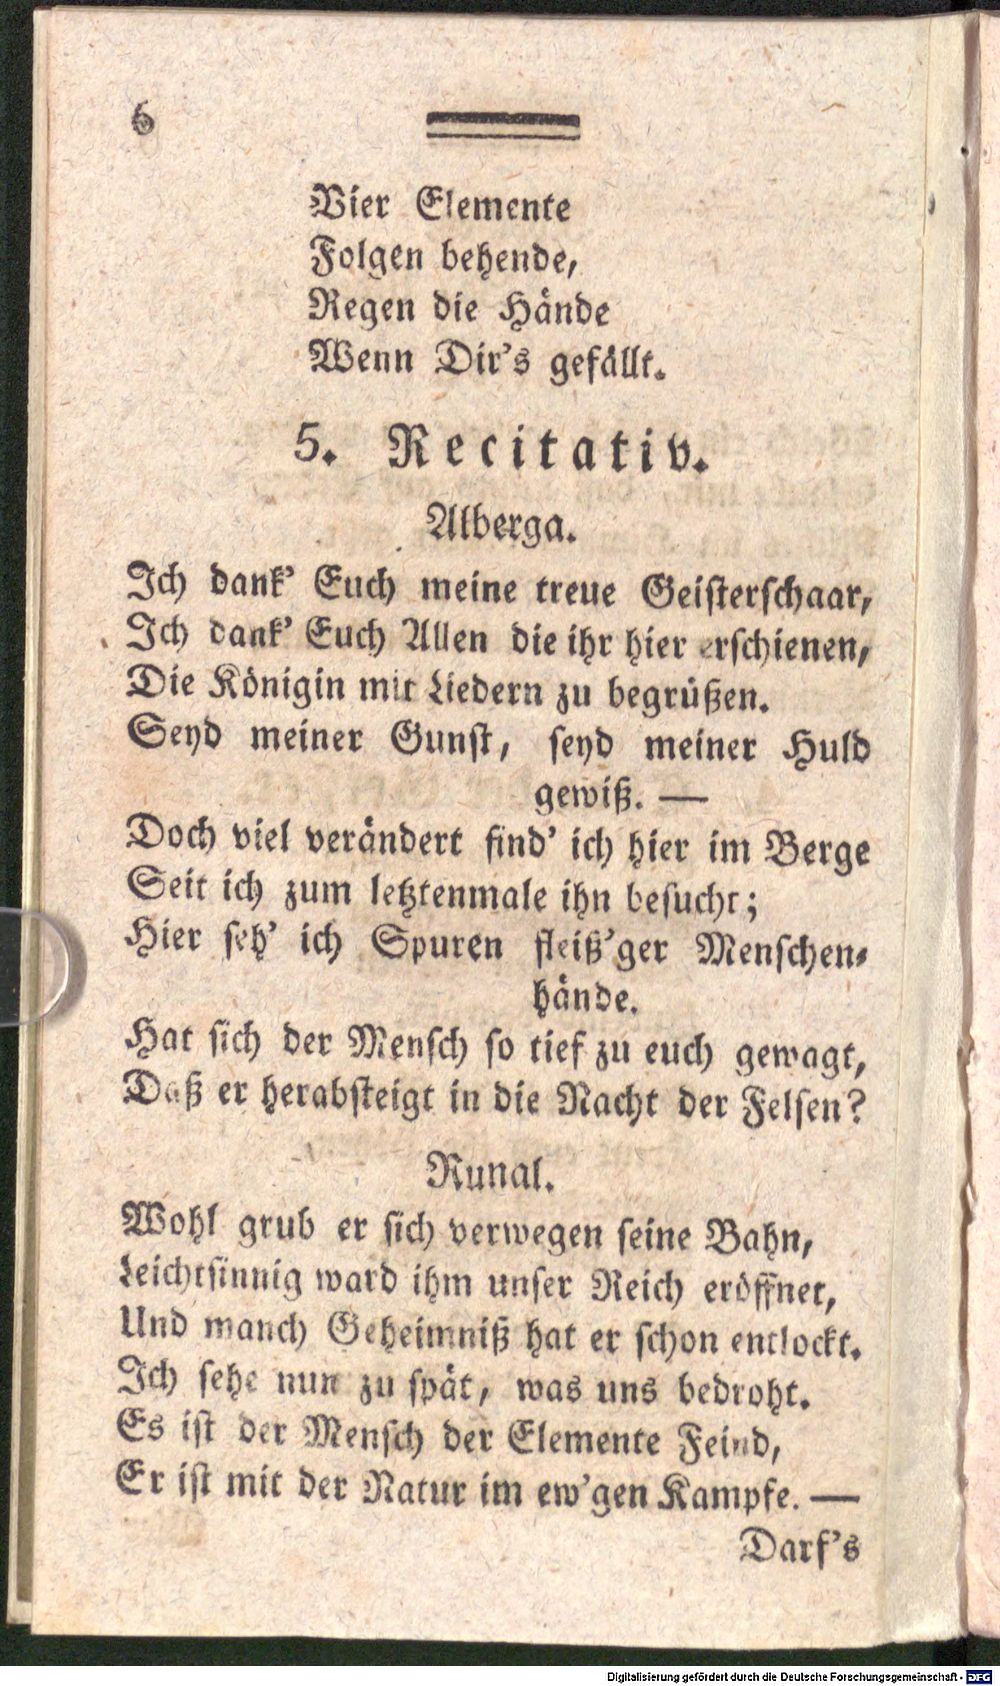 6
Vier Elemente
Folgen behende,
Regen die Hände
Wenn Dir's gefällt.
5. Recitativ.
Alberga.
Ich dank' Euch meine treue Geisterschaar,
Ich dank' Euch Allen die ihr hier erschienen,
Die Königin mit Liedern zu begrüßen.
Seyd meiner Gunst, seyd meiner Huld
gewiß. —
Doch viel verändert find' ich hier im Berge
Seit ich zum letztenmale ihn besucht;
Hier seh' ich Spuren fleiß'ger Menschen-
hände.
Hat sich der Mensch so tief zu euch gewagt,
Daß er herabsteigt in die Nacht der Felsen?
Runal.
Wohl grub er sich verwegen seine Bahn,
Leichtsinnig ward ihm unser Reich eröffnet,
Und manch Geheimniß hat er schon entlockt.
Ich sehe nun zu spät, was uns bedroht.
Es ist der Mensch der Elemente Feind,
Er ist mit der Natur im ew'gen Kampfe. —
Darf's
Digitalisierung gefördert durch die Deutsche Forschungsgemeinschaft - DFG